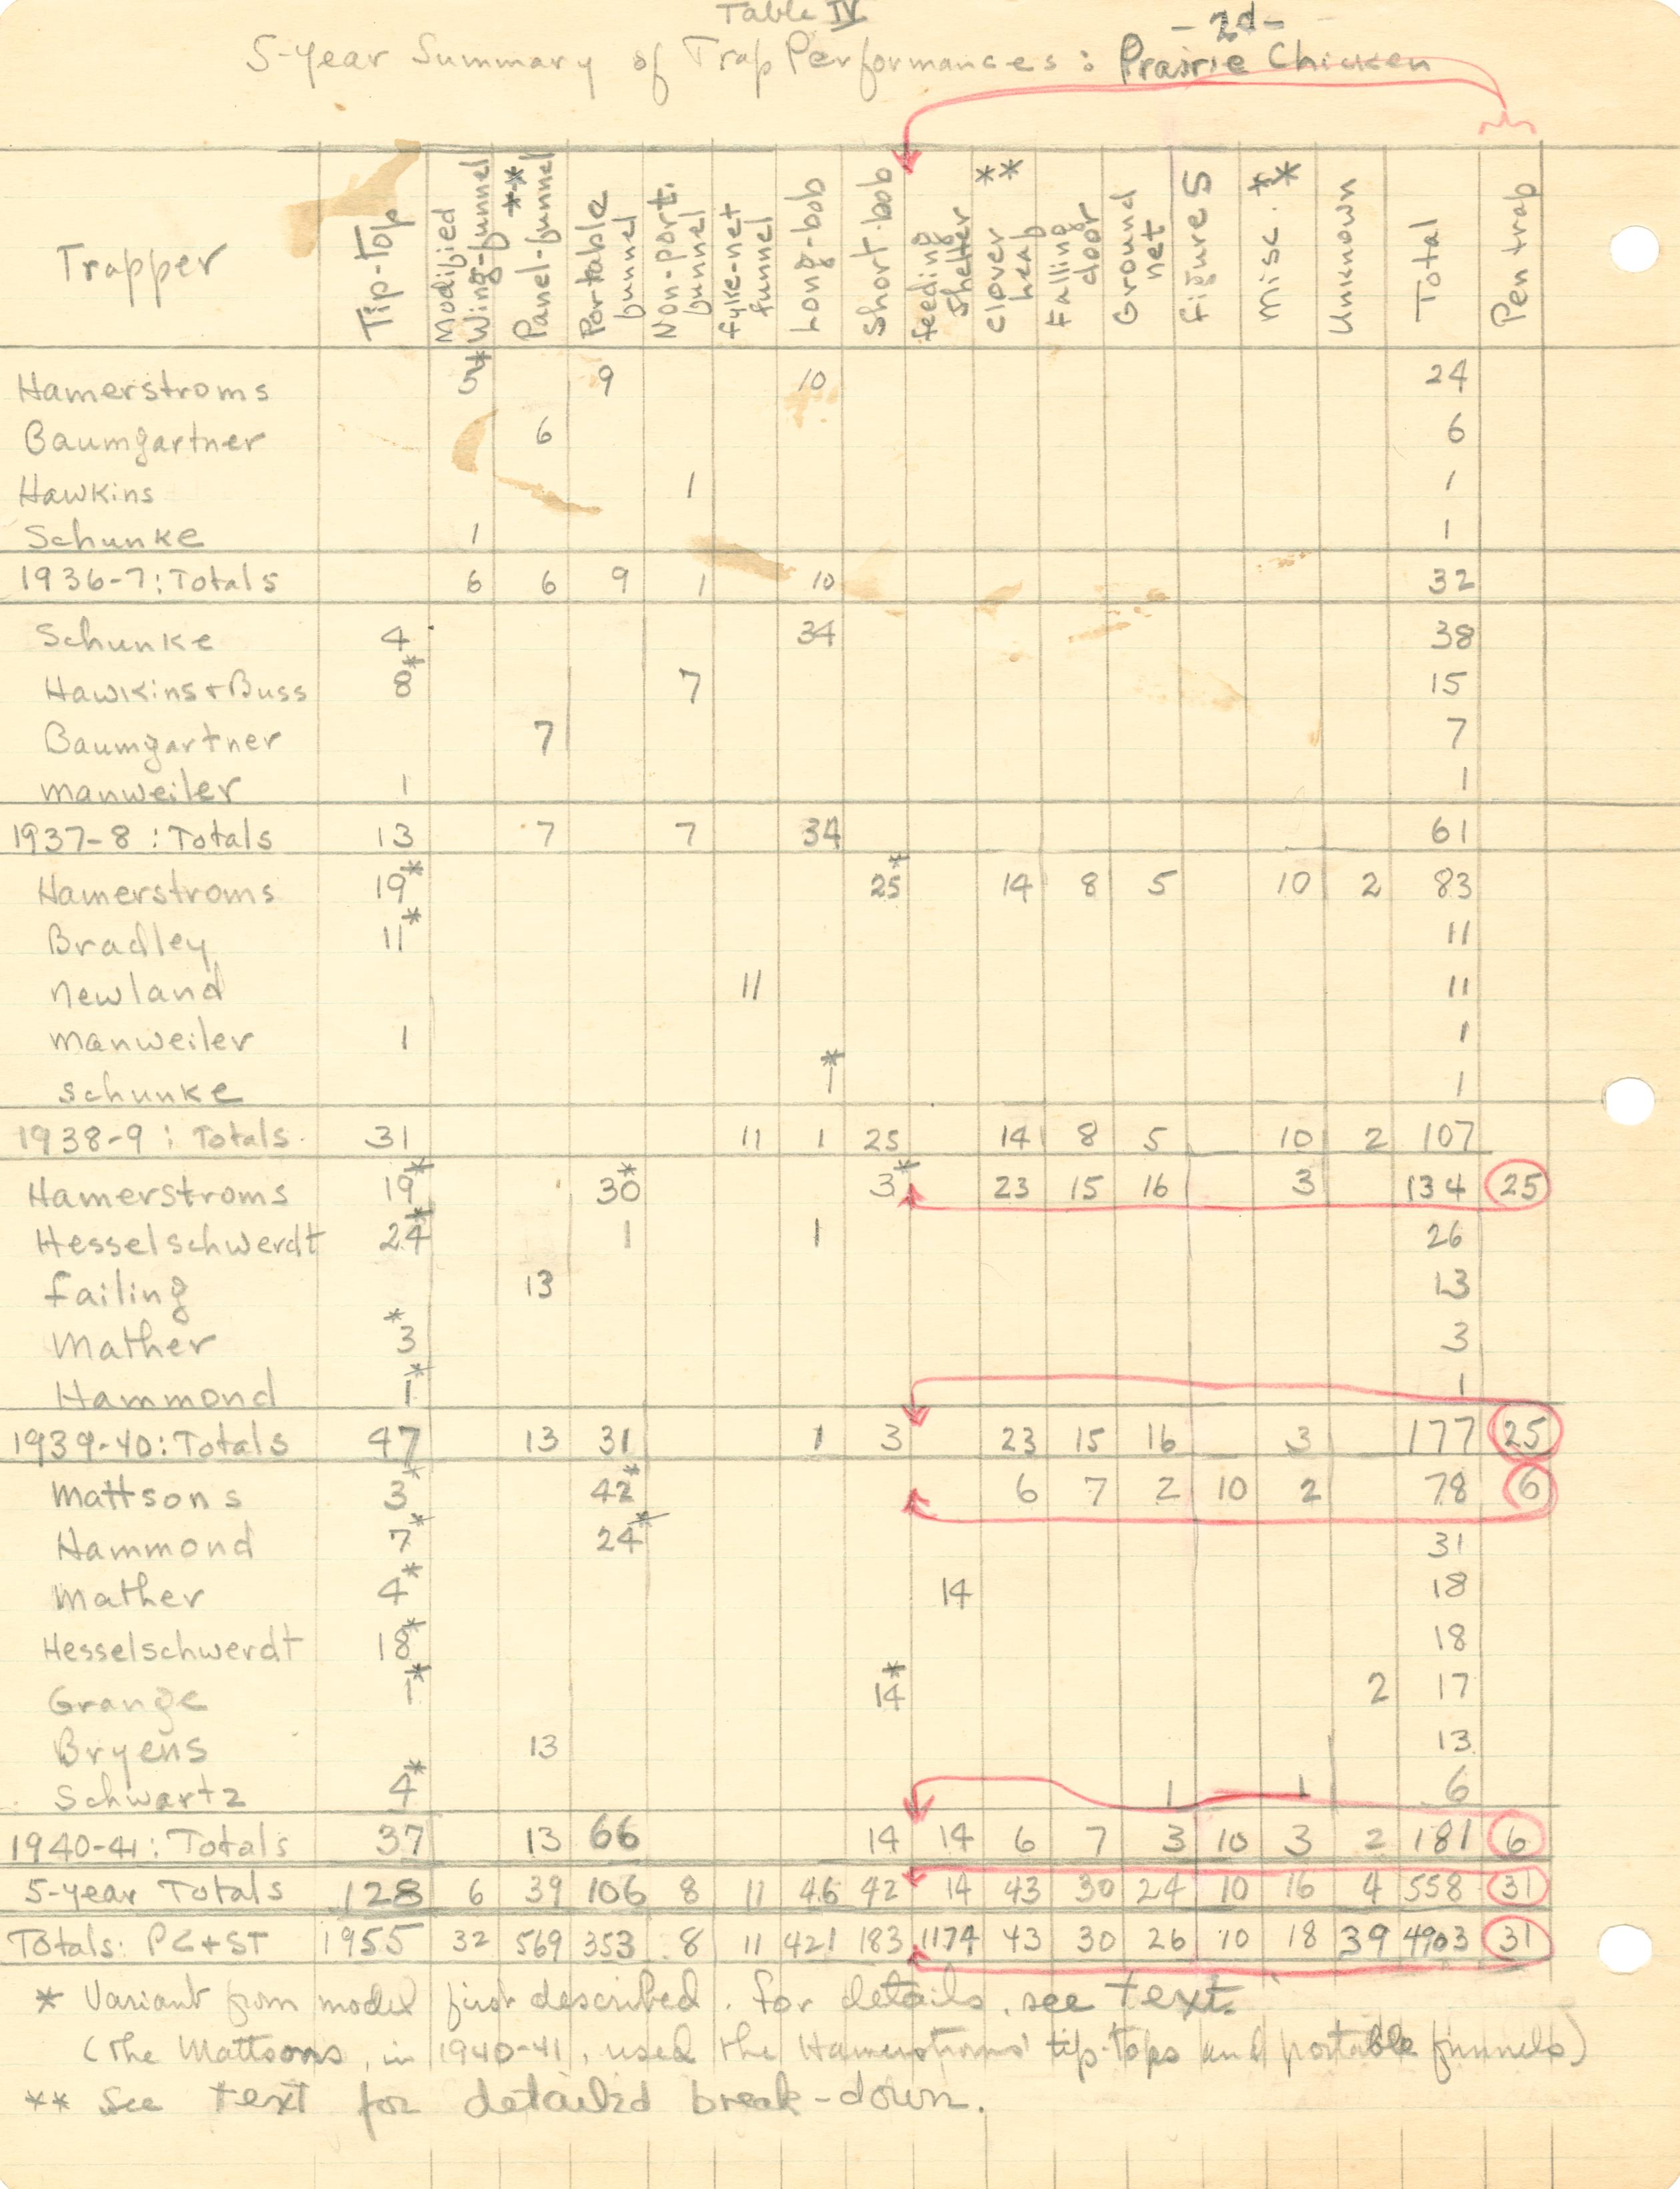 Table IV
- 2d -
5-Year Summary of Trap Performances: Prairie Chicken
Trapper Tip-Top Modified Wing-funnel Panel-funnel ** Portable funnel Non-port. funnel fyke-net funnel Long-bob Short-bob feeding shelter clover heap ** Falling door Ground net Figure 5 Misc. ** Unknown Total Pen trap
Hamerstroms 5* 9 10 24
Baumgartner 6 6
Hawkins 1 1
Schunke 1 1
1936-7: Totals 6 6 9 1 10 32
Schunke 4 34 38
Hawkins + Buss 8* 7 15
Baumgartner 7 7
Manweiler 1 1
1937-8: Totals 13 7 7 34 61
Hamerstroms 19* 25* 14 8 5 10 2 83
Bradley 11* 11
Newland 11 11
Manweiler 1 1
Schunke 1* 1
1938-9: Totals 31 11 1 25 14 8 5 10 2 107
Hamerstroms 19* 30* 3* 23 15 16 3 134 25
Hesselschwerdt 24* 1 1 26
Failing 13 13
Mather 3* 3
Hammond 1* 1
1939-40: Totals 47 13 31 1 3 23 15 16 3 177 25
Mattsons 3* 42* 6 7 2 10 2 78 6
Hammond 7* 24* 31
Mather 4* 14 18
Hesselschwerdt 18* 18
Grange 1* 14* 2 17
Bryens 13 13
Schwartz 4* 1 1 6
1940-41: Totals 37 13 66 14 14 6 7 3 10 3 2 181 6
5-year Totals 128 6 39 106 8 11 46 42 14 43 30 24 10 16 4 558 31
Totals: PC+ST 1955 32 569 353 8 11 421 183 1174 43 30 26 10 18 39 4903 31
* Variant from model first described. For details, see text.
(The Mattsons, in 1940-41, used the Hamerstroms' tip-tops and portable funnels)
** See text for detailed break-down.